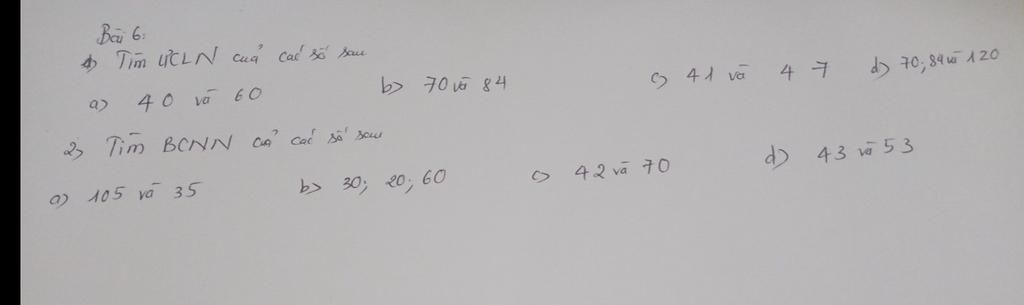 Bài 6:
1) Tìm ƯCLN của các số sau
a) 40 và 60 b) 70 và 84 c) 41 và 47 d) 70; 84 và 120
2) Tìm BCNN của các số sau
a) 105 và 35 b) 30; 20; 60 c) 42 và 70 d) 43 và 53